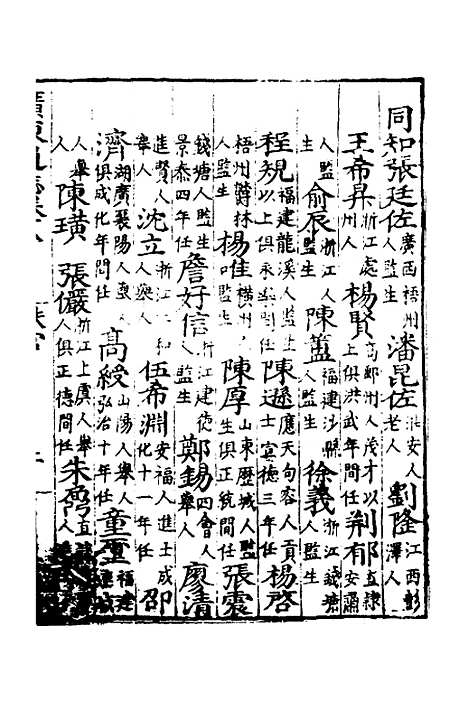 同知張廷佐廣西梧州人監生潘昆佐淮安人老人劉隆江西彭澤人
王希昇浙江處州人楊賢高郵州人茂才以上俱洪武年間任荆郁直隸安肅
人監生俞辰浙江人監生陳蓋福建沙縣人監生徐義浙江錢塘人監生
程規福建龍溪人監生以上俱永樂間任陳遜應天句容人貢士宣德三年任楊啓
梧州欝林人監生楊進橫州人監生陳厚山東歷城人監生俱正統間任張震
錢塘人監生景泰四年任詹好信浙江建德人監生鄭錫四會人舉人廖清
進賢人舉人沈立浙江仁和人舉人伍希淵安福人進士成化十一年任邵
濟湖廣襄陽人吏員俱成化年間任高綬山陽人舉人弘治十年任童璽福建連城
人舉人陳璜張儼浙江上虞人舉人俱正德間任朱喬直隸人